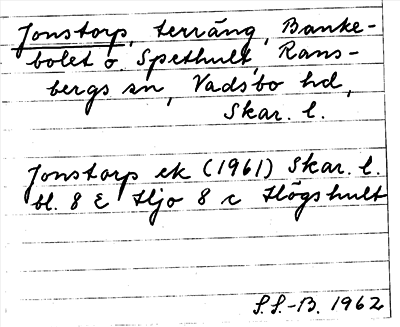 Jonstorp, terräng, Banke-
bolet o. Spethult, Rans-
bergs sn, Vadsbo hd,
Skar. l.
Jonstorp ek (1961) Skar. l.
bl. 8 E Hjo 8 c Högshult
S.S.-B. 1962